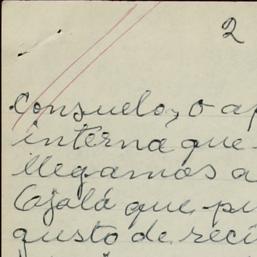 2
consuelo, o ap
interna que
llegamos a
Ojalá que pu
gusto de reci